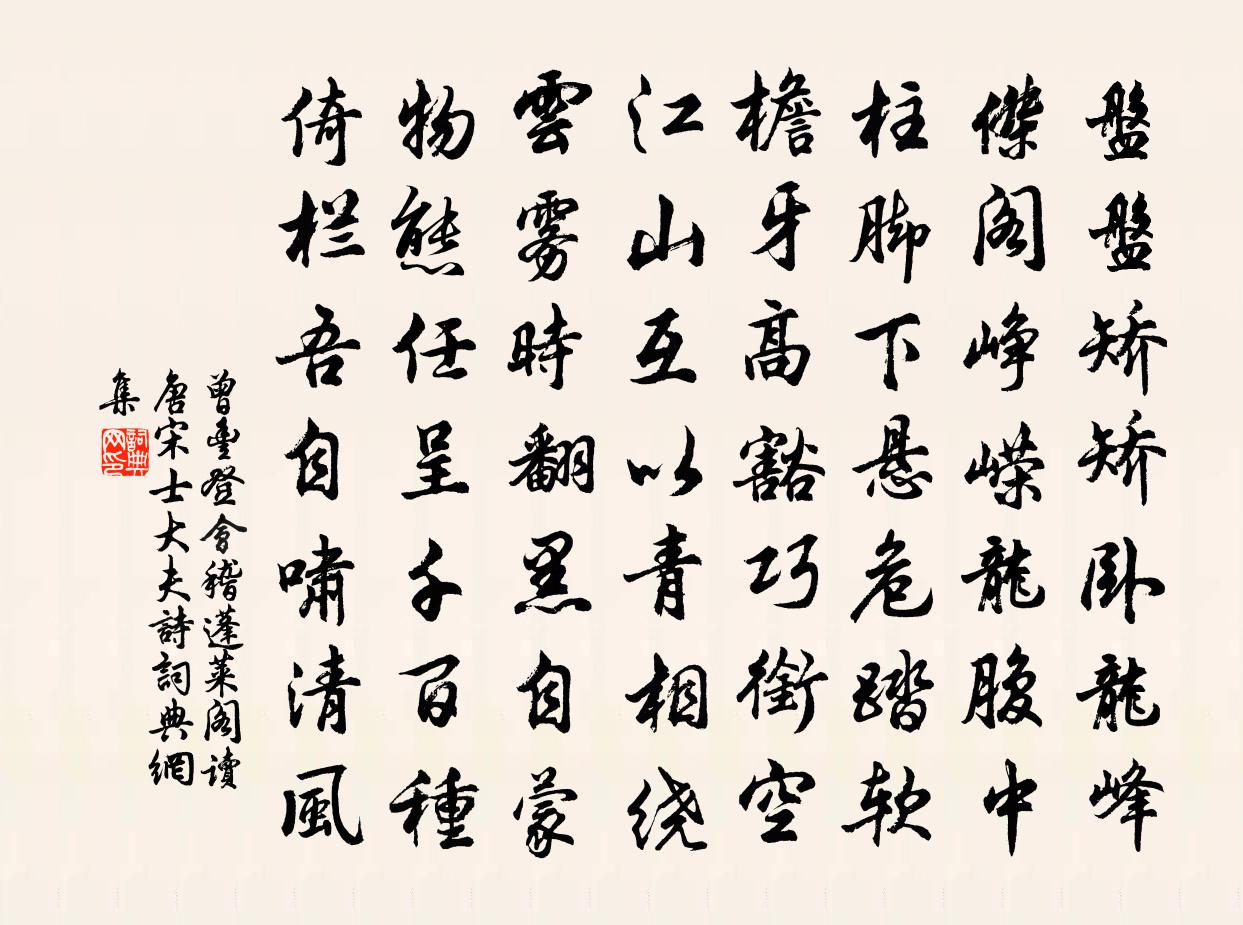 盤盤矫矫卧龍峰
傑阁峥嵘龍腹中
柱脚下悬危踏软
檐牙高豁巧銜空
江山互以青相绕
雲雾時翻黑自蒙
物態任呈千百種
倚栏吾自啸清風
曾豊登會稽蓬萊阁讀
唐宋士大夫詩詞典網
集
詞典
网印